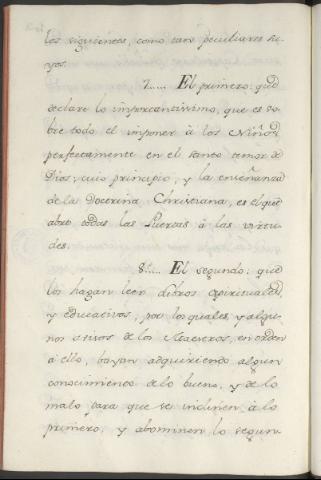 los siguientes, como tan peculiares su-
yos.
7..... El primero: qud
declare lo importantisimo, que es so-
bre todo el imponer à los Niños,
perfectamente en el santo temor de
Dios, cuio principio, y la enseñanza
de la Doctrina Christiana, es el que
abre todas las Puertas à las virtu-
des.
8.... El segundo: que
los hagan leer Libros espirituales,
y educativos, por los quales, y algu-
nos avisos de los Maestros, en orden
a ello, bayan adquiriendo algun
conocimiento de lo bueno, y de lo
malo para que se inclinen à lo
primero, y abominen lo segun-